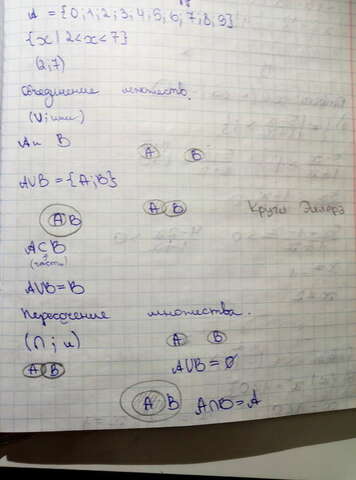 A = {0;1;2;3;4;5;6;7;8;9}
{x | 2<x<7}
(2,7)
Объединение множеств.
(∪; или)
A и B
A B
A∪B = {A;B}
A B
Круги Эйлера
A B
A⊂B
(часть)
A∪B=B
Пересечение множества.
(∩ ; и)
A B
A B
A∪B=∅
A B A∩B=A